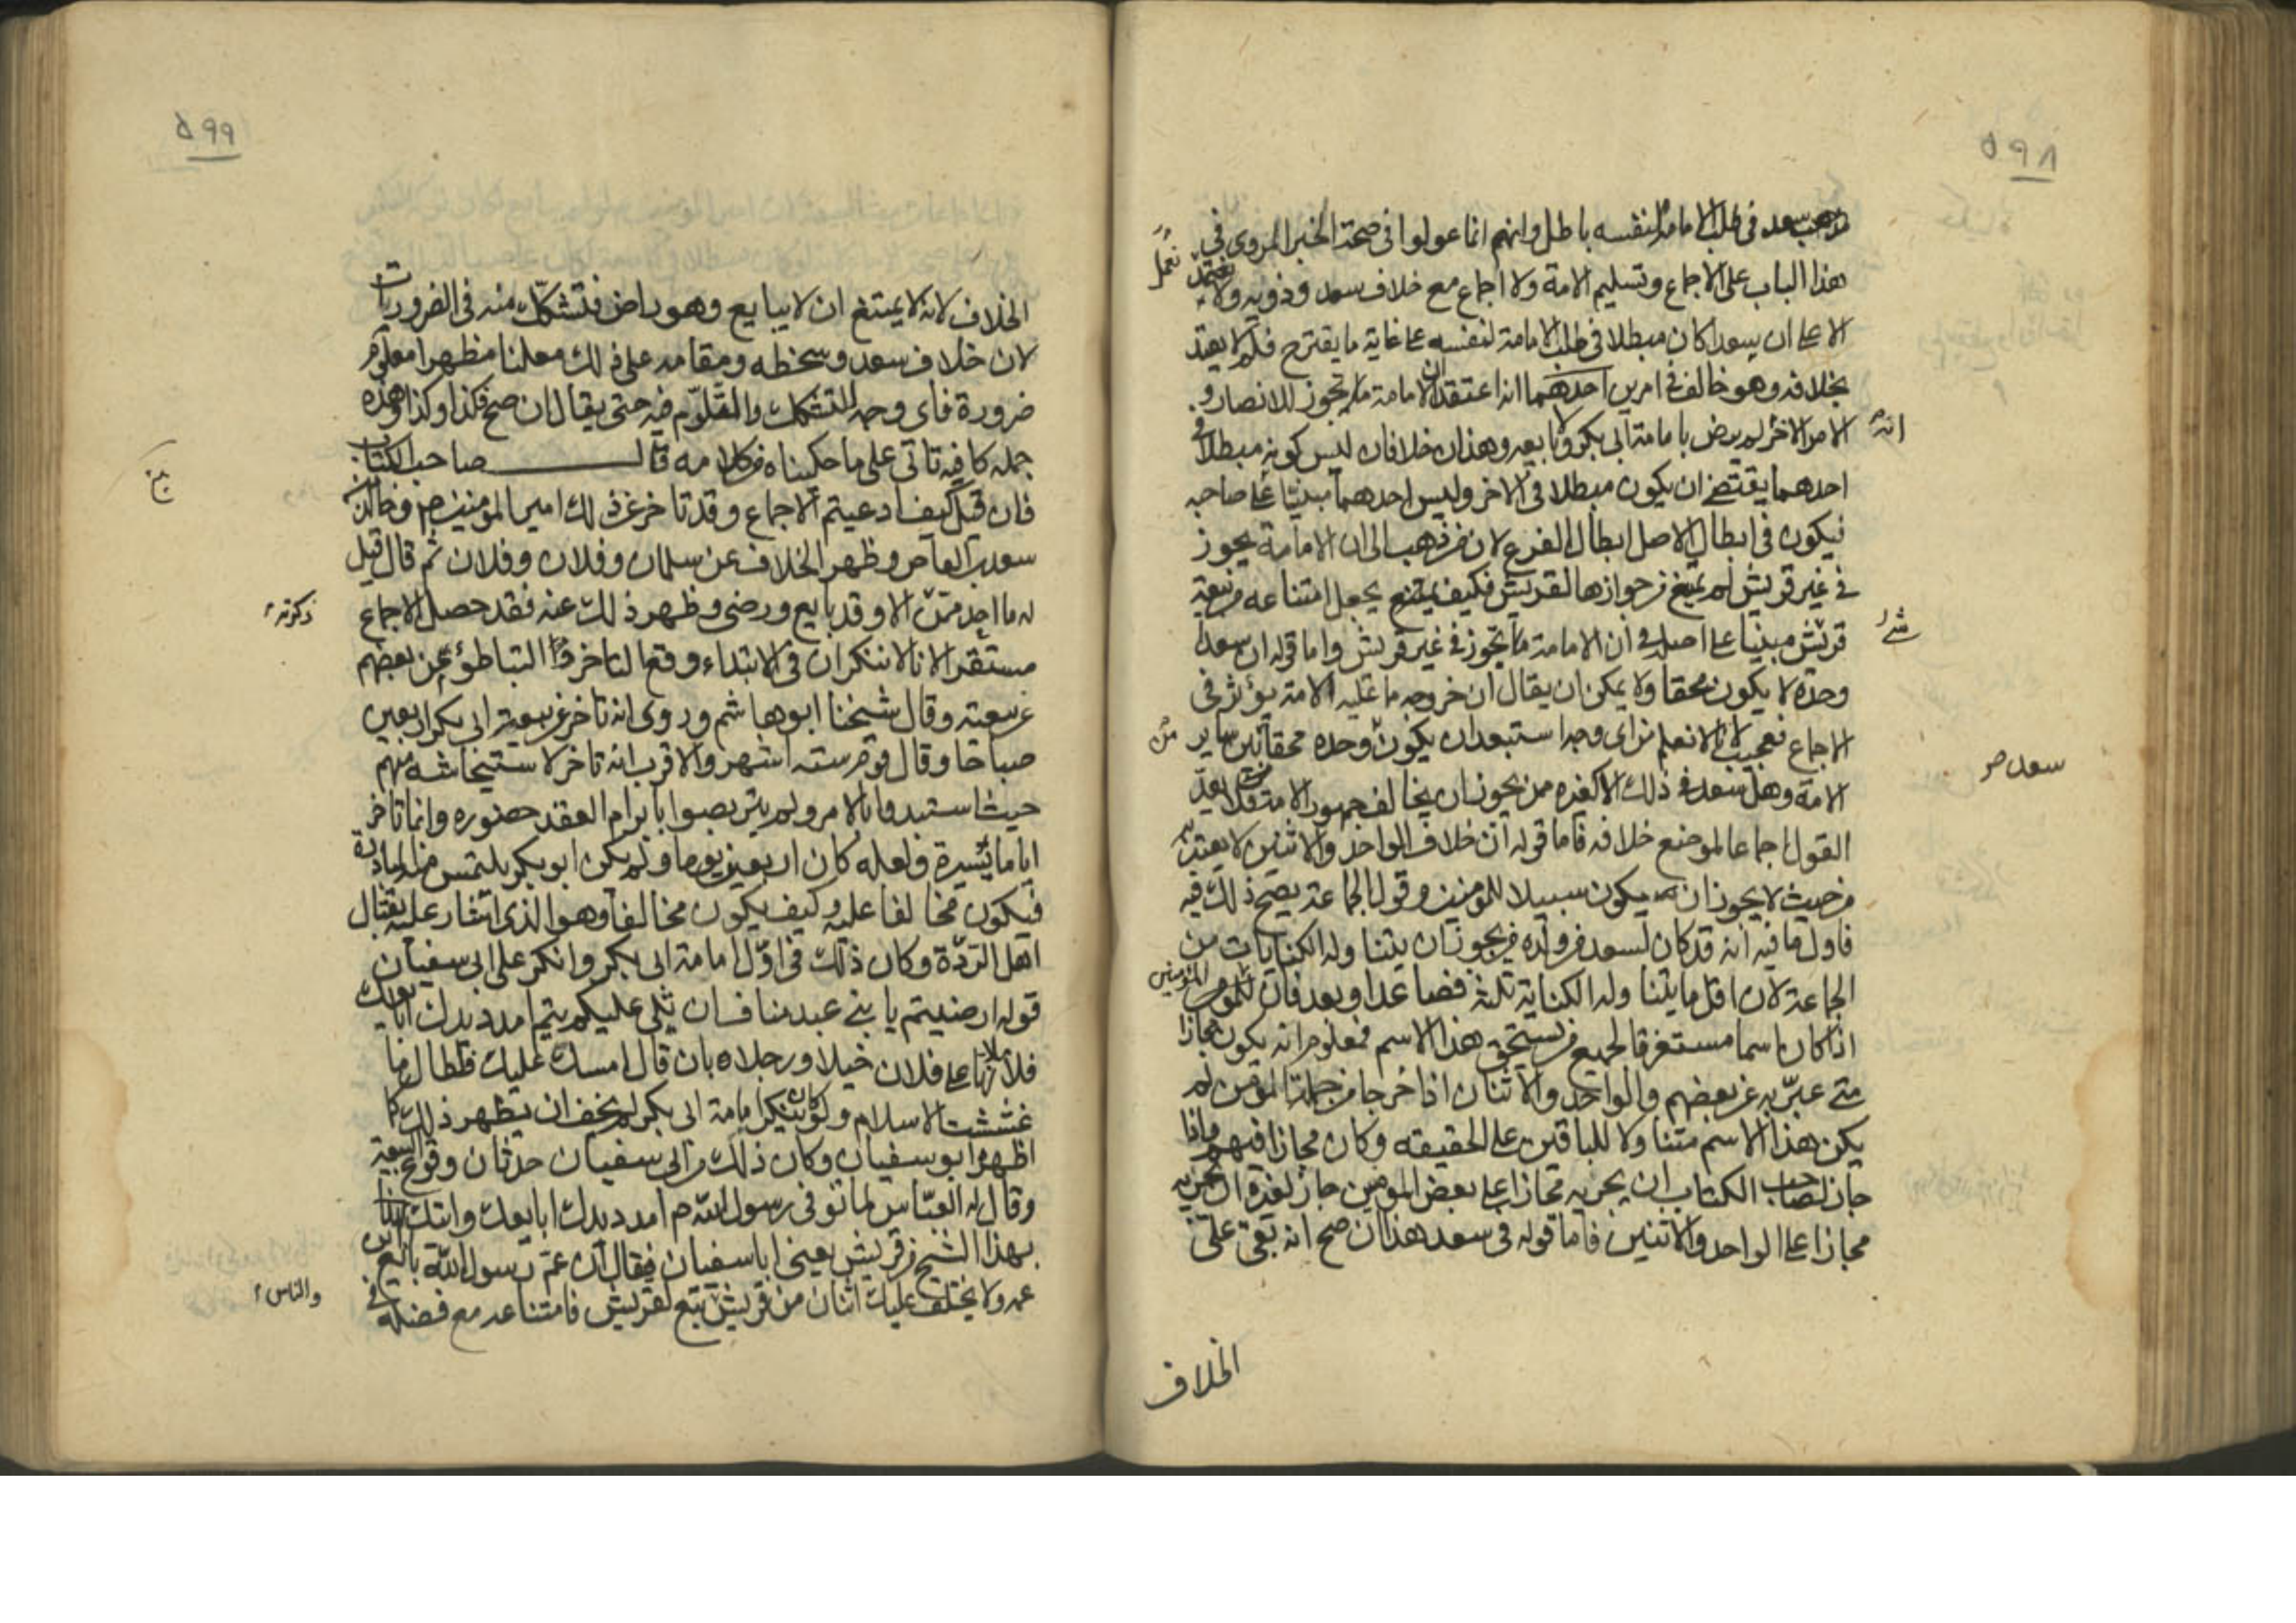 ٥٩٨
مذهب سعد فى طلب الامامة لنفسه باطل وانهم انما عولوا فى صحة الخبر المروى فى
هذا الباب على الاجماع وتسليم الامة ولا اجماع مع خلاف سعد وذويه ولا
نعمل
الا على ان سعدا كان مبطلا فى طلب الامامة لنفسه على غاية ما يقترح فلم لا يعتد
بخلافه وهو خالف فى امرين احدهما انه اعتقد ان الامامة تجوز للانصار و
الامر الاخر لم يرض بامامة ابى بكر ولا بايعه وهذان خلافان ليس كونه مبطلا فى
انه
احدهما يقتضى ان يكون مبطلا فى الاخر وليس احدهما مبنيا على صاحبه
فيكون فى ابطال الاصل ابطال الفرع لان من ذهب الى ان الامامة يجوز
فى غير قريش لم يمنع من جوازها لقريش فكيف يجعل امتناعه من بيعة
قريش مبنيا على اصله فى ان الامامة تجوز فى غير قريش واما قوله ان سعدا
شى
وحده لا يكون محقا ولا يمكن ان يقال ان خروجه مما عليه الامة يؤثر فى
الاجماع فعجيب لانا لا نعلم من اى وجه استبعد ان يكون وحده محقا سائر
من
سعد صر
الامة وهل سعد فى ذلك الا كغيره ممن يجوز ان يخالف جمهور الامة فلا يعد
القول اجماعا لموضع خلافه فاما قوله ان خلاف الواحد والاثنين لا يعتد به
من حيث لا يجوز ان يكون سبيلا للمؤمنين وقول الجماعة يصح ذلك فيه
فاول ما فيه انه قد كان لسعد من ولده من يجوز ان يتناوله الكنايات من
الجماعة لان اقل ما يتناوله الكناية ثلثة فصاعدا وبعد فان المؤمنين
اذا كان اسما مستغرقا لجميع من يستحق هذا الاسم فمعلوم انه يكون مجازا
متى عبر به عن بعضهم والواحد والاثنان اذا خرجا من جملة المؤمنين لم
يكن هذا الاسم متناولا للباقين على الحقيقه وكان مجازا فيهم واذا
جاز لصاحب الكتاب ان يجريه مجازا على بعض المؤمنين جاز لغيره ان يجريه
مجازا على الواحد والاثنين فاما قوله فى سعد هذا ان صح انه بقى على
الخلاف
٥٩٩
الخلاف لانه لا يمتنع ان لا يبايع وهو راض فتشكك منه فى الضروريات
لان خلاف سعد وسخطه ومقامه على ذلك معلنا مظهرا معلوم
ضرورة فاى وجه للتشكك والتلوم فيه حتى يقال ان صح فكذا وكذا وهذه
جمله كافيه تاتى على ما حكيناه من كلامه قال صاحب الكتاب
فان قيل كيف ادعيتم الاجماع وقد تاخر عن ذلك امير المؤمنين وخالد بن
سعد بن العاص وظهر الخلاف عن سلمان وفلان وفلان ثم قال قيل
له ما احد ممن الا وقد بايع ورضى وظهر ذلك عنه فقد حصل الاجماع
ذكرته
مستقرا لانا لا ننكر ان فى الابتداء وقع التاخر والتباطؤ من بعضهم
عن بيعته وقال شيخنا ابو هاشم وروى انه تاخر عن بيعة ابى بكر اربعين
صباحا وقال قوم ستة اشهر والاقرب انه تاخر لاستيحاشه منهم
حيث استبدوا بالامر ولم يتربصوا بابرام العقد حضوره وانما تاخر
اياما يسيرة ولعله كان اربعين يوما ولم يكن ابو بكر يلتمس منه المبادرة
فيكون مخالفا عليه وكيف يكون مخالفا وهو الذى اشار عليه بقتال
اهل الردة وكان ذلك فى اول امامة ابى بكر وانكر على ابى سفيان
قوله ارضيتم يا بنى عبد مناف ان يلى عليكم تيم امدد يدك ابايعك
فلأملأنها على فلان خيلا ورجلا بان قال امسك عليك فطال ما
غششت الاسلام ولو كان ينكر امامة ابى بكر لم يخف ان يظهر ذلك كما
اظهره ابو سفيان وكان ذلك من ابى سفيان حدثان وقوع البيعة
وقال له العباس لما توفى رسول الله ص امدد يدك ابايعك واتيك
بهذا الشيخ من قريش يعنى ابا سفيان فيقال ان عم رسول الله بايع ابن
عمه ولا يختلف عليك اثنان من قريش تبع لقريش فامتناعه مع فضله فى
والناس